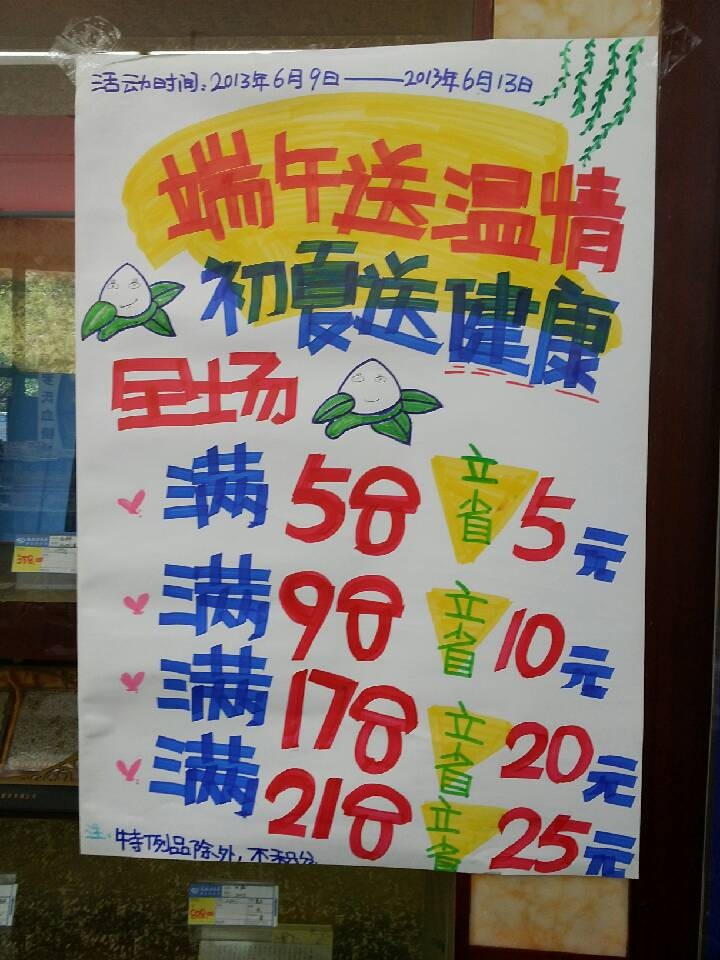 活动时间:2013年6月9日——2013年6月13日
端午送温情
初夏送健康
全场
满58立省5元
满98立省10元
满178立省20元
满218立省25元
注:特例品除外,不积分
358.00